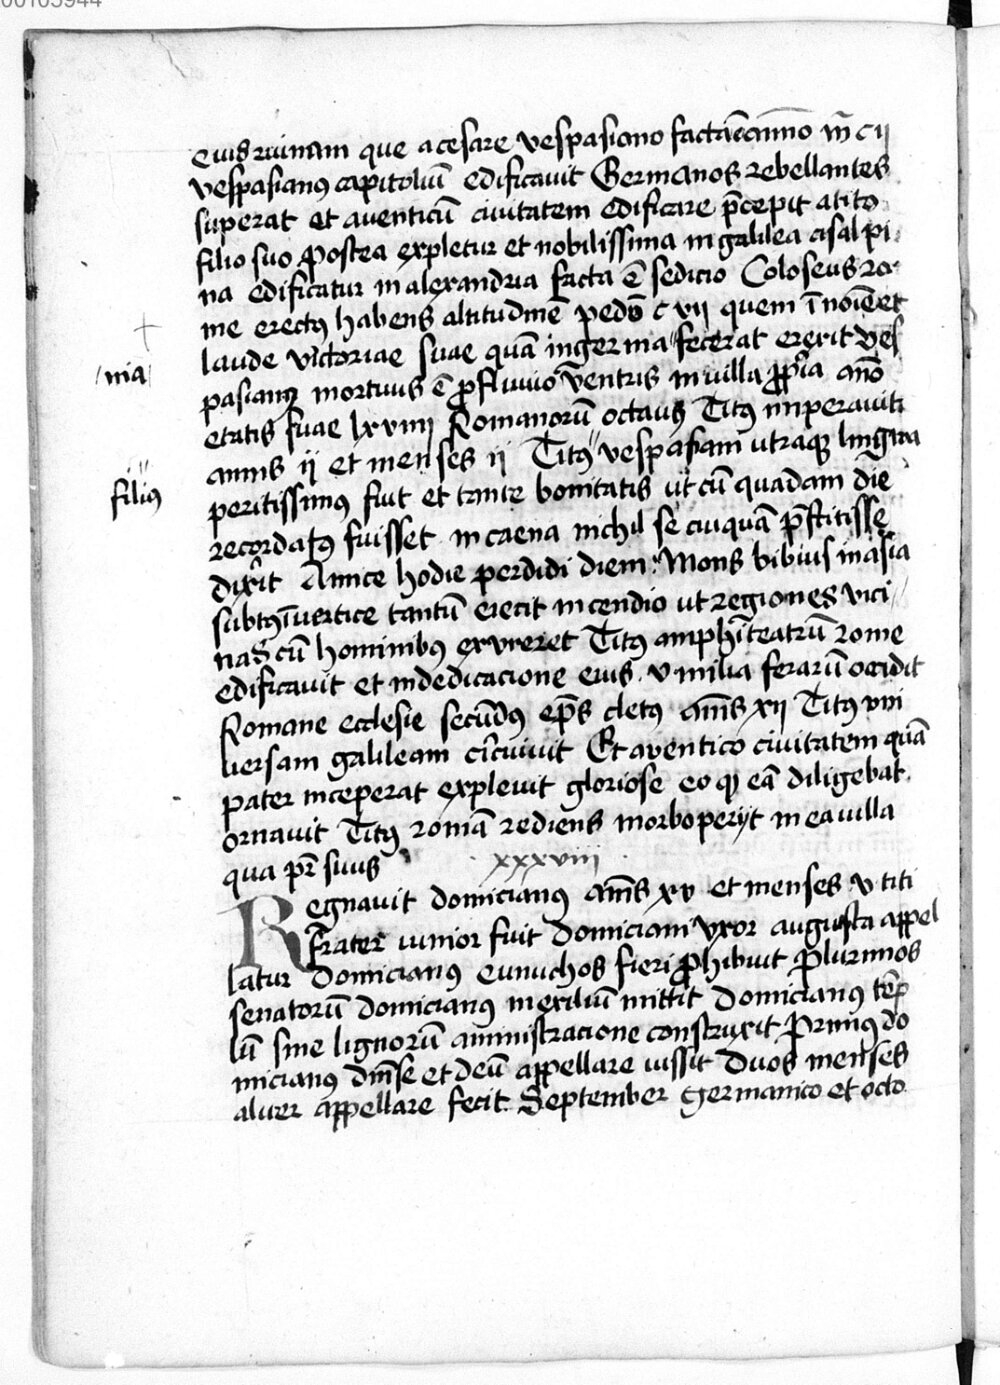 00105944
eius ruinam que a cesare vespasiano facta ē anno m̄ c ii
vespasianꝰ capitoliū edificavit Germanos rebellantes
superat et aventicū civitatem edificare p̄cepit a tito
filio suo postea expletur et nobilissima in galilea cisalpi
na edificatur in alexandria facta ē sedicio Coloseus ro
me erectꝰ habens altitudinē pedū c vii quem ī noīe et
laude victoriae suae quā in germa fecerat erexit ves
/nia/
pasianꝰ mortuus ē profluvio ventris in villa ꝓpria anō
etatis suae lxviiii Romanorū octavꝰ Titꝰ imperavit
annis ij et menses ij Titꝰ" vespasiani utraqꝫ lingua
"filiꝰ
peritissimꝰ fuit et tante bonitatis ut cū quadam die
recordatꝰ fuisset in caena nichil se cuiquā p̄stitisse
dixit Amice hodie perdidi diem Mons bibius in asia
vertice tantū eiecit incendio ut regiones vici
nas cū hominibꝰ exureret Titꝰ amphiteatrū rome
edificavit et in dedicacione eius v milia ferarū occidit
Romane ecclesie secūdꝰ ep̄s cletꝰ annis xii Titꝰ uni
versam galileam circuivit Et aventico civitatem quā
pater inceperat explevit gloriose eo qꝫ eā diligebat
ornavit Titꝰ romā rediens morbo perijt in ea villa
qua pr̄ suus
xxxviii
Regnavit domicianꝰ annis xv et menses v titi
Frater iunior fuit domiciani uxor augusta appel
latur Domicianꝰ eunuchos fieri ꝓhibuit plurimos
senatorū domicianꝰ in exiliū mittit domicianꝰ tēp
lū sine lignorū aministracione construxit Primꝰ do
micianꝰ dn̄m se et deū appellare iussit Duos menses
aliter appellare fecit September germanico et octo